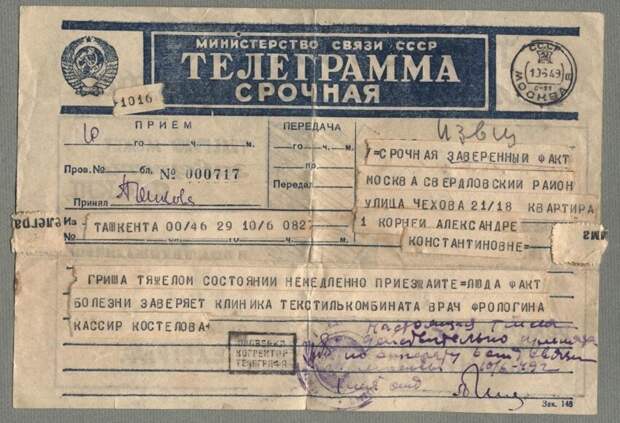 МИНИСТЕРСТВО СВЯЗИ СССР
ТЕЛЕГРАММА
СРОЧНАЯ
СССР
10649
МОСКВА
1016
ПРИЕМ
го ч. м.
Пров.№ бл. № 000717
Принял
ПЕРЕДАЧА
го ч. м.
Передал
=СРОЧНАЯ ЗАВЕРЕННЫЙ ФАКТ
МОСКВА СВЕРДЛОВСКИЙ РАЙОН
УЛИЦА ЧЕХОВА 21/18 КВАРТИРА
1 КОРНЕЙ АЛЕКСАНДРЕ
КОНСТАНТИНОВНЕ=
Из
№
ТАШКЕНТА 00/46 29 10/6 0827
ГРИША ТЯЖЕЛОМ СОСТОЯНИИ НЕМЕДЛЕННО ПРИЕЗЖАЙТЕ=ЛЮДА ФАКТ
БОЛЕЗНИ ЗАВЕРЯЕТ КЛИНИКА ТЕКСТИЛЬКОМБИНАТА ВРАЧ ФРОЛОГИНА
КАССИР КОСТЕЛОВА+
КОРРЕКТОР
ТЕЛЕГРАФА
действительно
10/6-49г
Зак. 148